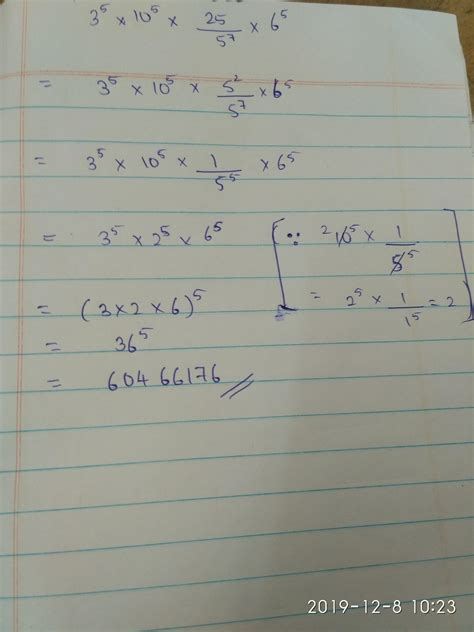 3⁵ × 10⁵ × 25/5⁷ × 6⁵
= 3⁵ × 10⁵ × 5²/5⁷ × 6⁵
= 3⁵ × 10⁵ × 1/5⁵ × 6⁵
= 3⁵ × 2⁵ × 6⁵
[∵ ²10⁵ × 1/5⁵
= 2⁵ × 1/1⁵ = 2]
= (3×2×6)⁵
= 36⁵
= 60466176 //
2019-12-8 10:23